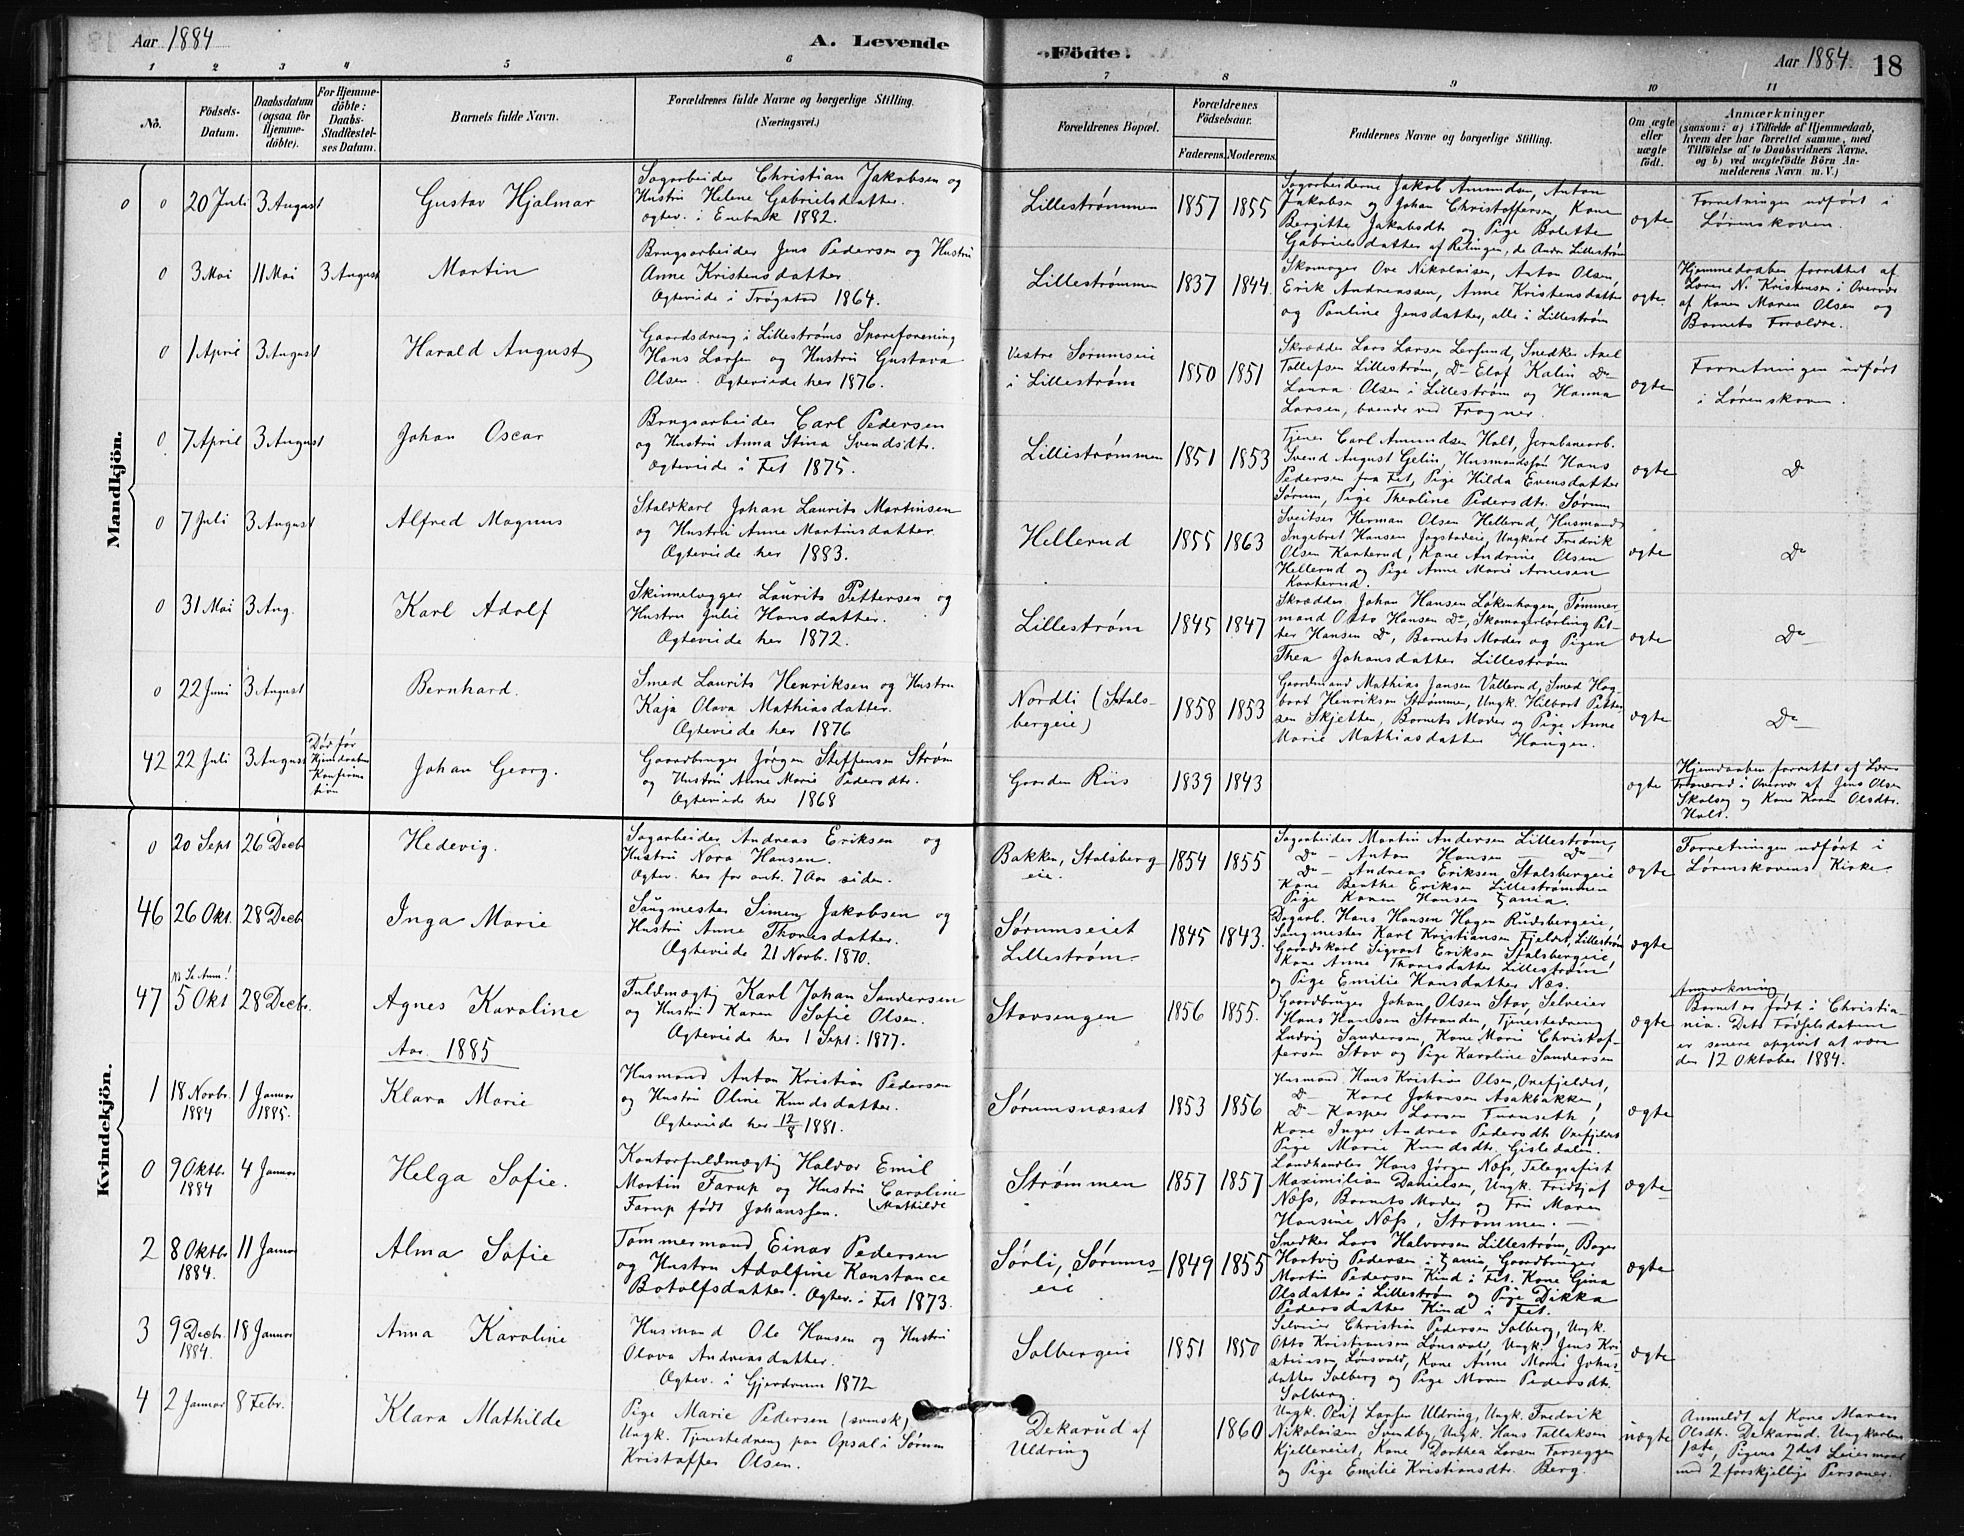 Aar 1884
A. Levende
Födte.
Aar 1884.
18
1 2 3 4 5 6 7 8 9 10 11
No.
Födsels-
Datum.
Daabsdatum
(ogsaa for
Hjemme-
döbte).
For Hjemme-
döbte:
Daabs-
Stadfæstel-
ses Datum.
Barnets fulde Navn.
Forældrenes fulde Navne og borgerlige Stilling.
(Næringsvei.)
Forældrenes Bopæl.
Forældrenes
Födselsaar.
Faderens. Moderens.
Faddernes Navne og borgerlige Stilling.
Om ægte
eller
uægte
födt.
Anmærkninger
(saasom: a) i Tilfælde af Hjemmedaab,
hvem der har forrettet samme, med
Tilföielse af to Daabsvidners Navne.
og b) ved uægtefödte Börn An-
melderens Navn m. V.)
Mandkjön.
0 0 20 Juli 3 August
Gustav Hjalmar
Sagarbeider Christian Jakobsen og
Hustru Helene Gabrielsdatter.
ægtev. i Enebak 1882.
Lillestrømmen
1857 1855
Sagarbeiderne Jakob Amundsen, Anton
Jakobsen og Johan Christoffersen, Kone
Bergitte Jakobsdt. og Pige Bolette
Gabrielsdatter af Rælingen, de Andre Lillestrøm
ægte
Forretningen udført i
Lørenskoven.
0 3 Mai 11 Mai 3 August
Martin
Brugsarbeider Jens Pedersen og Hustru
Anne Kristensdatter
Ægteviede i Trøgstad 1864.
Lillestrømmen
1837 1844.
Skomager Ove Nikolaisen, Anton Olsen,
Erik Andreassen, Anne Kristensdatter
og Pauline Jensdatter, alle i Lillestrøm
ægte
Hjemmedaaben forrettet af
Lærer N. Kristensen i Overvær
af Konen Maren Olsen og
Barnets Forældre.
0 1 April 3 August
Harald August
Gaardsdreng i Lillestrøms Spareforening
Hans Larsen og Hustru Gustava
Olsen. Ægteviede her 1876.
Vestre Sørumseie
i Lillestrøm
1850 1851
Skrædder Lars Larsen Lersund, Snedker Axel
Tollefsen Lillestrøm, Do Elof Kalin Do
Laura Olsen i Lillestrøm og Hanna
Larsen, boende ved Frogner.
ægte
Forretningen udført
i Lørenskoven.
0 7 April 3 August
Johan Oscar
Brugsarbeider Carl Pedersen
og Hustru Anna Stina Svendsdtr.
Ægteviede i Fet 1875.
Lillestrømmen
1851 1853
Tjener Carl Amundsen Holt, Jernbanearb.
Svend August Gelin, Husmandssøn Hans
Pedersen fra Fet, Pige Hilda Evensdatter
Sørum, Pige Theoline Pedersdtr. Sørum
ægte
Do
0 7 Juli 3 August
Alfred Magnus
Staldkarl Johan Laurits Martinsen
og Hustru Anne Martinsdatter
Ægteviede her 1883.
Hellerud
1855 1863
Sveitser Herman Olsen Hellerud, Husmand
Ingebret Hansen Jogstadeie, Ungkarl Fredrik
Olsen Karterud, Kone Andrine Olsen
Hellerud og Pige Anne Marie Arnesen
Karterud.
ægte
Do
0 31 Mai 3 Aug.
Karl Adolf
Skinnelægger Laurits Pettersen og
Hustru Julie Hansdatter.
Ægteviede her 1872.
Lillestrøm
1845 1847
Skrædder Johan Hansen Løkenhagen, Tømmer-
mand Otto Hansen Do, Skomagerlærling Pet-
ter Hansen Do, Barnets Moder og Pigen
Thea Johansdatter Lillestrøm
ægte
Do
0 22 Juni 3 August
Bernhard.
Smed Laurits Henriksen og Hustru
Kaja Olava Mathiasdatter.
Ægteviede her 1876
Nordli (Stals-
bergeie)
1858 1853
Gaardmand Mathias Jansen Vallerud, Smed Hag-
bart Henriksen Strømmen, Ungk. Hilbart Petter-
sen Skjetten, Barnets Moder og Pige Anne
Marie Mathiasdatter Haugen.
ægte
Do
42 22 Juli 3 August
Død før
Hjemdaaben
Konfirma-
tion
Johan Georg.
Gaardbruger Jørgen Steffensen Strøm
og Hustru Anne Marie Pedersdtr.
Ægteviede her 1868
Gaarden Riis
1839 1843
ægte
Hjemdaaben forrettet af Lærer
i Overvær af Jens Olsen
Skolseg og Kone Karen Olsdtr.
Holt.
Kvindekjön.
0 20 Sept 26 Decb
Hedevig.
Sagarbeider Andreas Eriksen og
Hustru Nora Hansen.
Ægtev. her for omt. 7 Aar siden.
Bakken, Stalsberg
eie.
1854 1855
Sagarbeider Martin Andersen Lillestrøm,
Do Anton Hansen Do
Do Andreas Eriksen Stalsbergeie
Kone Berthe Eriksen Lillestrømmen
Pige Karen Hansen Xania.
ægte
Forretningen udført i
Lørenskovens Kirke.
46 26 Okt. 28 Decb
Inga Marie
Saugmester Simen Jakobsen og
Hustru Anne Thoresdatter.
Ægteviede 21 Novb. 1870.
Sørumseiet
Lillestrøm.
1845 1843.
Dagarb. Hans Hansen Hagen Rudsbergeie,
Saugmester Karl Kristiansen Fjeldet, Lillestrøm
Gaardskarl Sigvart Eriksen Stalsbergeie,
Kone Anne Thoresdatter Lillestrøm
og Pige Emilie Hansdatter Næs.
ægte
N. Se Anm!
47 5 Okt 28 Decbr.
Agnes Karoline
Fuldmægtig Karl Johan Sandersen
og Hustru Karen Sofie Olsen.
Ægteviede her 1 Sept. 1877.
Stavsengen
1856 1855.
Gaardbruger Johan Olsen Stav, Selveier
Hans Hansen Stranden, Tjenestedreng
Ludvig Sandersen, Kone Marie Christof-
fersen Stav og Pige Karoline Sandersen
ægte
Anmærkning
Barnet er født i Christia-
nia. Dets Fødselsdatum
er senere opgivet at være
den 12 Oktober 1884.
Aar 1885
1 18 Novbr. 1884 1 Januar 1885.
Klara Marie
Husmand Anton Kristian Pedersen
og Hustru Oline Knudsdatter.
Ægteviede her 12/8 1881.
Sørumsnæsset
1853 1856
Husmand Hans Kristian Olsen, Ornefjeldet,
Do Karl Johansen Asakbakken,
Do Kasper Larsen Tuenseth,
Kone Inger Andrea Pedersdtr. Ornefjeldet
Pige Marie Knudsdtr. Gisledalen.
ægte
0 9 Oktbr. 1884 4 Januar
Helga Sofie.
Kontorfuldmægtig Halvor Emil
Martin Farup og Hustru Caroline
Mathilde
Farup født Johanssen.
Strømmen
1857 1857
Landhandler Hans Jørgen Næss, Telegrafist
Maximilian Danielsen, Ungk. Fridtjof
Næss, Barnets Moder og Fru Maren
Hansine Næss, Strømmen.
ægte
2 8 Oktbr 1884. 11 Januar
Alma Sofie
Tømmermand Einar Pedersen
og Hustru Adolfine Konstance
Botolfsdatter. Ægtev. i Fet 1873.
Sørli, Sørums-
eie
1849 1855
Snedker Lars Halvorsen Lillestrøm, Bager
Hartvig Pedersen i Xania, Gaardbruger
Martin Pedersen Kind i Fet. Kone Gina
Olsdatter i Lillestrøm og Pige Dikka
Pedersdatter Kind i Fet.
ægte
3 9 Decbr. 1884. 18 Januar
Anna Karoline
Husmand Ole Hansen og Hustru
Olava Andreasdatter.
Ægtev. i Gjerdrum 1872
Solbergeie
1851 1850
Selveier Christian Pedersen Solberg, Ungk.
Otto Kristiansen Lønsvald, Ungk. Jens Kri-
stiansen Lønsvald, Kone Anne Marie Johns-
datter Solberg og Pige Maren Pedersdtr.
Solberg.
ægte
4 2 Januar 8 Febr.
Klara Mathilde
Pige Marie Pedersen (svensk)
Ungk. Tjenestedreng paa Opsal i Sørum
Kristoffer Olsen.
Dekarud af
Uldring
1860
Ungk. Oluf Larsen Uldring, Ungk. Fredrik
Nikolaisen Svendby, Ungk. Hans Tollaksen
Kjellereiet, Kone Dorthea Larsen Torseggen
og Pige Emilie Kristiansdtr. Berg.
uægte
Anmeldt af Kone Maren
Olsdtr. Dekarud. Ungkarlens
1ste, Pigens 2det Leiermaal
med 2 forskjellige Personer.